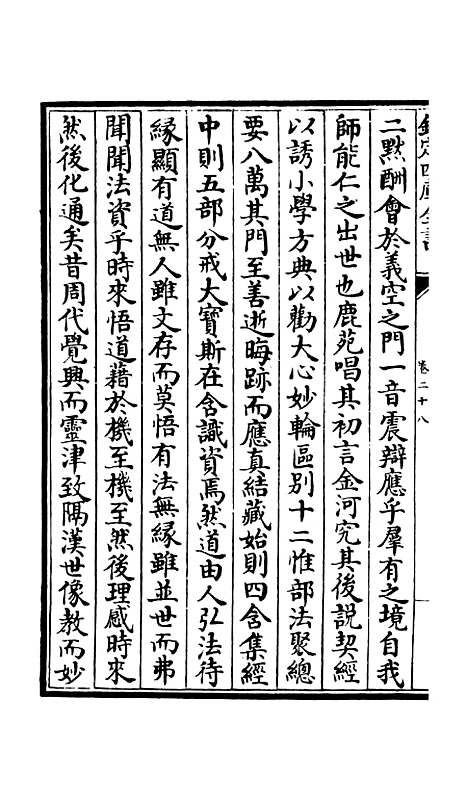 欽定四庫全書
卷二十八
二黙酬會於義空之門一音震辯應乎羣有之境自我
師能仁之出世也鹿苑唱其初言金河究其後說契經
以誘小學方典以勸大心妙輪區别十二惟部法聚總
要八萬其門至善逝晦跡而應真結藏始則四含集經
中則五部分戒大寶斯在含識資焉然道由人弘法待
緣顯有道無人雖文存而莫悟有法無緣雖並世而弗
聞聞法資乎時來悟道藉於機至機至然後理感時來
然後化通矣昔周代覺興而靈津致隔漢世像教而妙